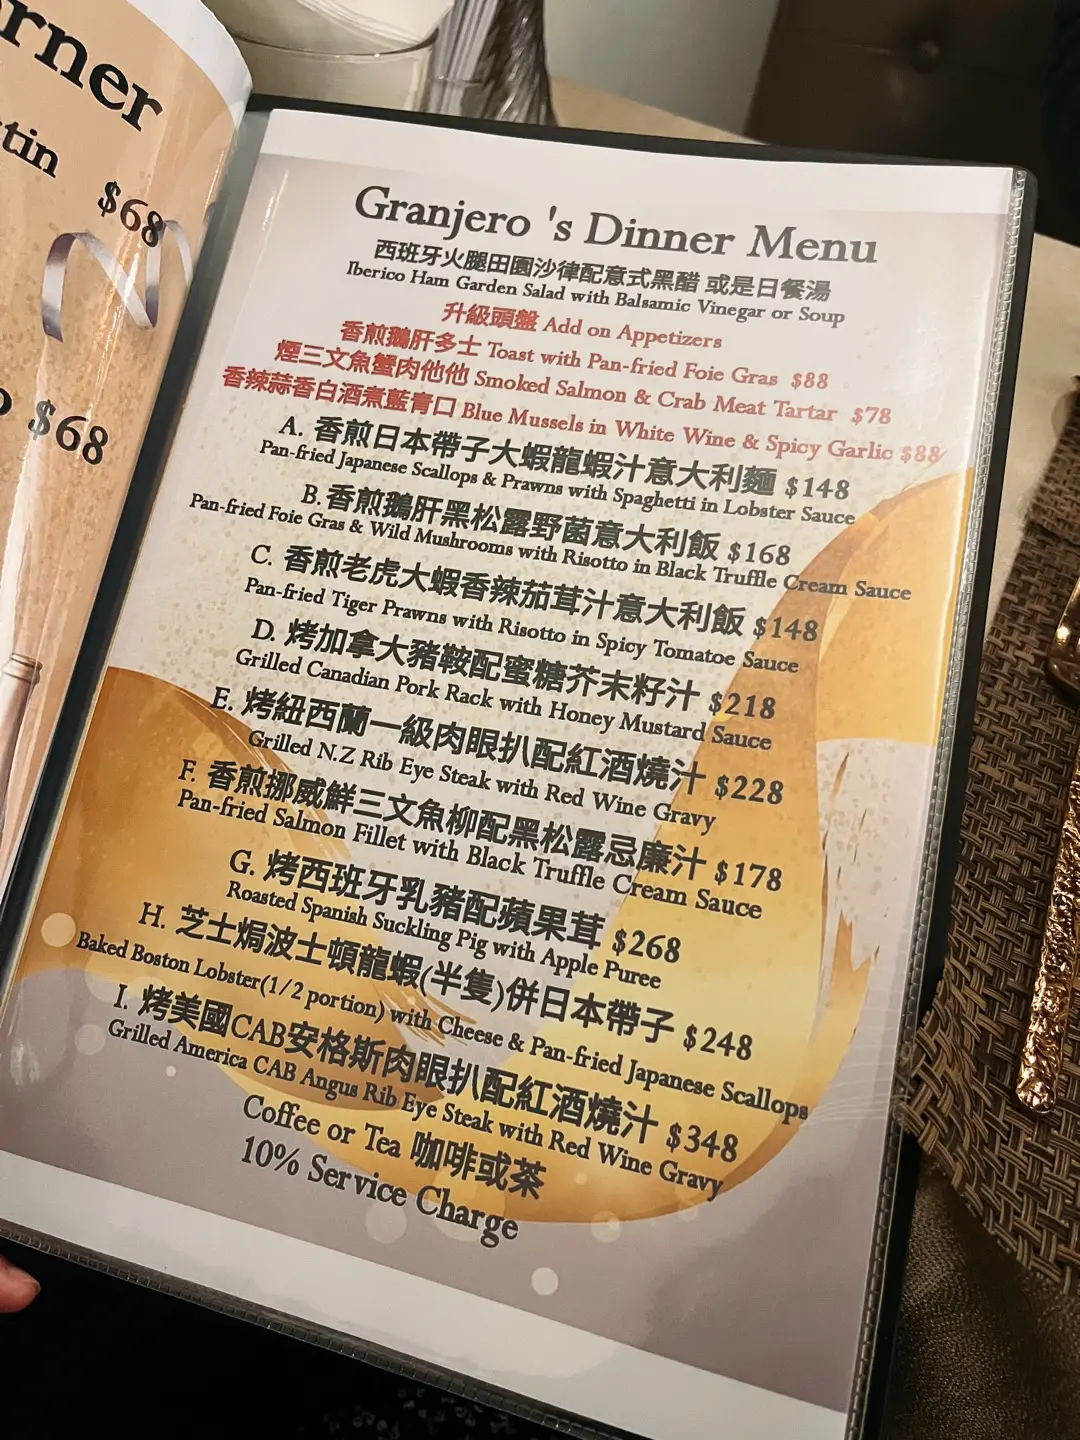 rner
tin
$68
$68
Granjero 's Dinner Menu
西班牙火腿田園沙律配意式黑醋 或是日餐湯
Iberico Ham Garden Salad with Balsamic Vinegar or Soup
升級頭盤 Add on Appetizers
香煎鵝肝多士 Toast with Pan-fried Foie Gras $88
煙三文魚蟹肉他他 Smoked Salmon & Crab Meat Tartar $78
香辣蒜香白酒煮藍青口 Blue Mussels in White Wine & Spicy Garlic $88
A. 香煎日本帶子大蝦龍蝦汁意大利麵 $148
Pan-fried Japanese Scallops & Prawns with Spaghetti in Lobster Sauce
B. 香煎鵝肝黑松露野菌意大利飯 $168
Pan-fried Foie Gras & Wild Mushrooms with Risotto in Black Truffle Cream Sauce
C. 香煎老虎大蝦香辣茄茸汁意大利飯 $148
Pan-fried Tiger Prawns with Risotto in Spicy Tomatoe Sauce
D. 烤加拿大豬鞍配蜜糖芥末籽汁 $218
Grilled Canadian Pork Rack with Honey Mustard Sauce
E. 烤紐西蘭一級肉眼扒配紅酒燒汁 $228
Grilled N.Z Rib Eye Steak with Red Wine Gravy
F. 香煎挪威鮮三文魚柳配黑松露忌廉汁 $178
Pan-fried Salmon Fillet with Black Truffle Cream Sauce
G. 烤西班牙乳豬配蘋果茸 $268
Roasted Spanish Suckling Pig with Apple Puree
H. 芝士焗波士頓龍蝦(半隻)併日本帶子 $248
Baked Boston Lobster(1/2 portion) with Cheese & Pan-fried Japanese Scallops
I. 烤美國CAB安格斯肉眼扒配紅酒燒汁 $348
Grilled America CAB Angus Rib Eye Steak with Red Wine Gravy
Coffee or Tea 咖啡或茶
10% Service Charge